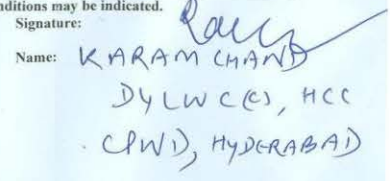 nditions may be indicated.
Signature:
Name: KARAM CHAND
DYLWC(C), HCC
CPWD, HYDERABAD